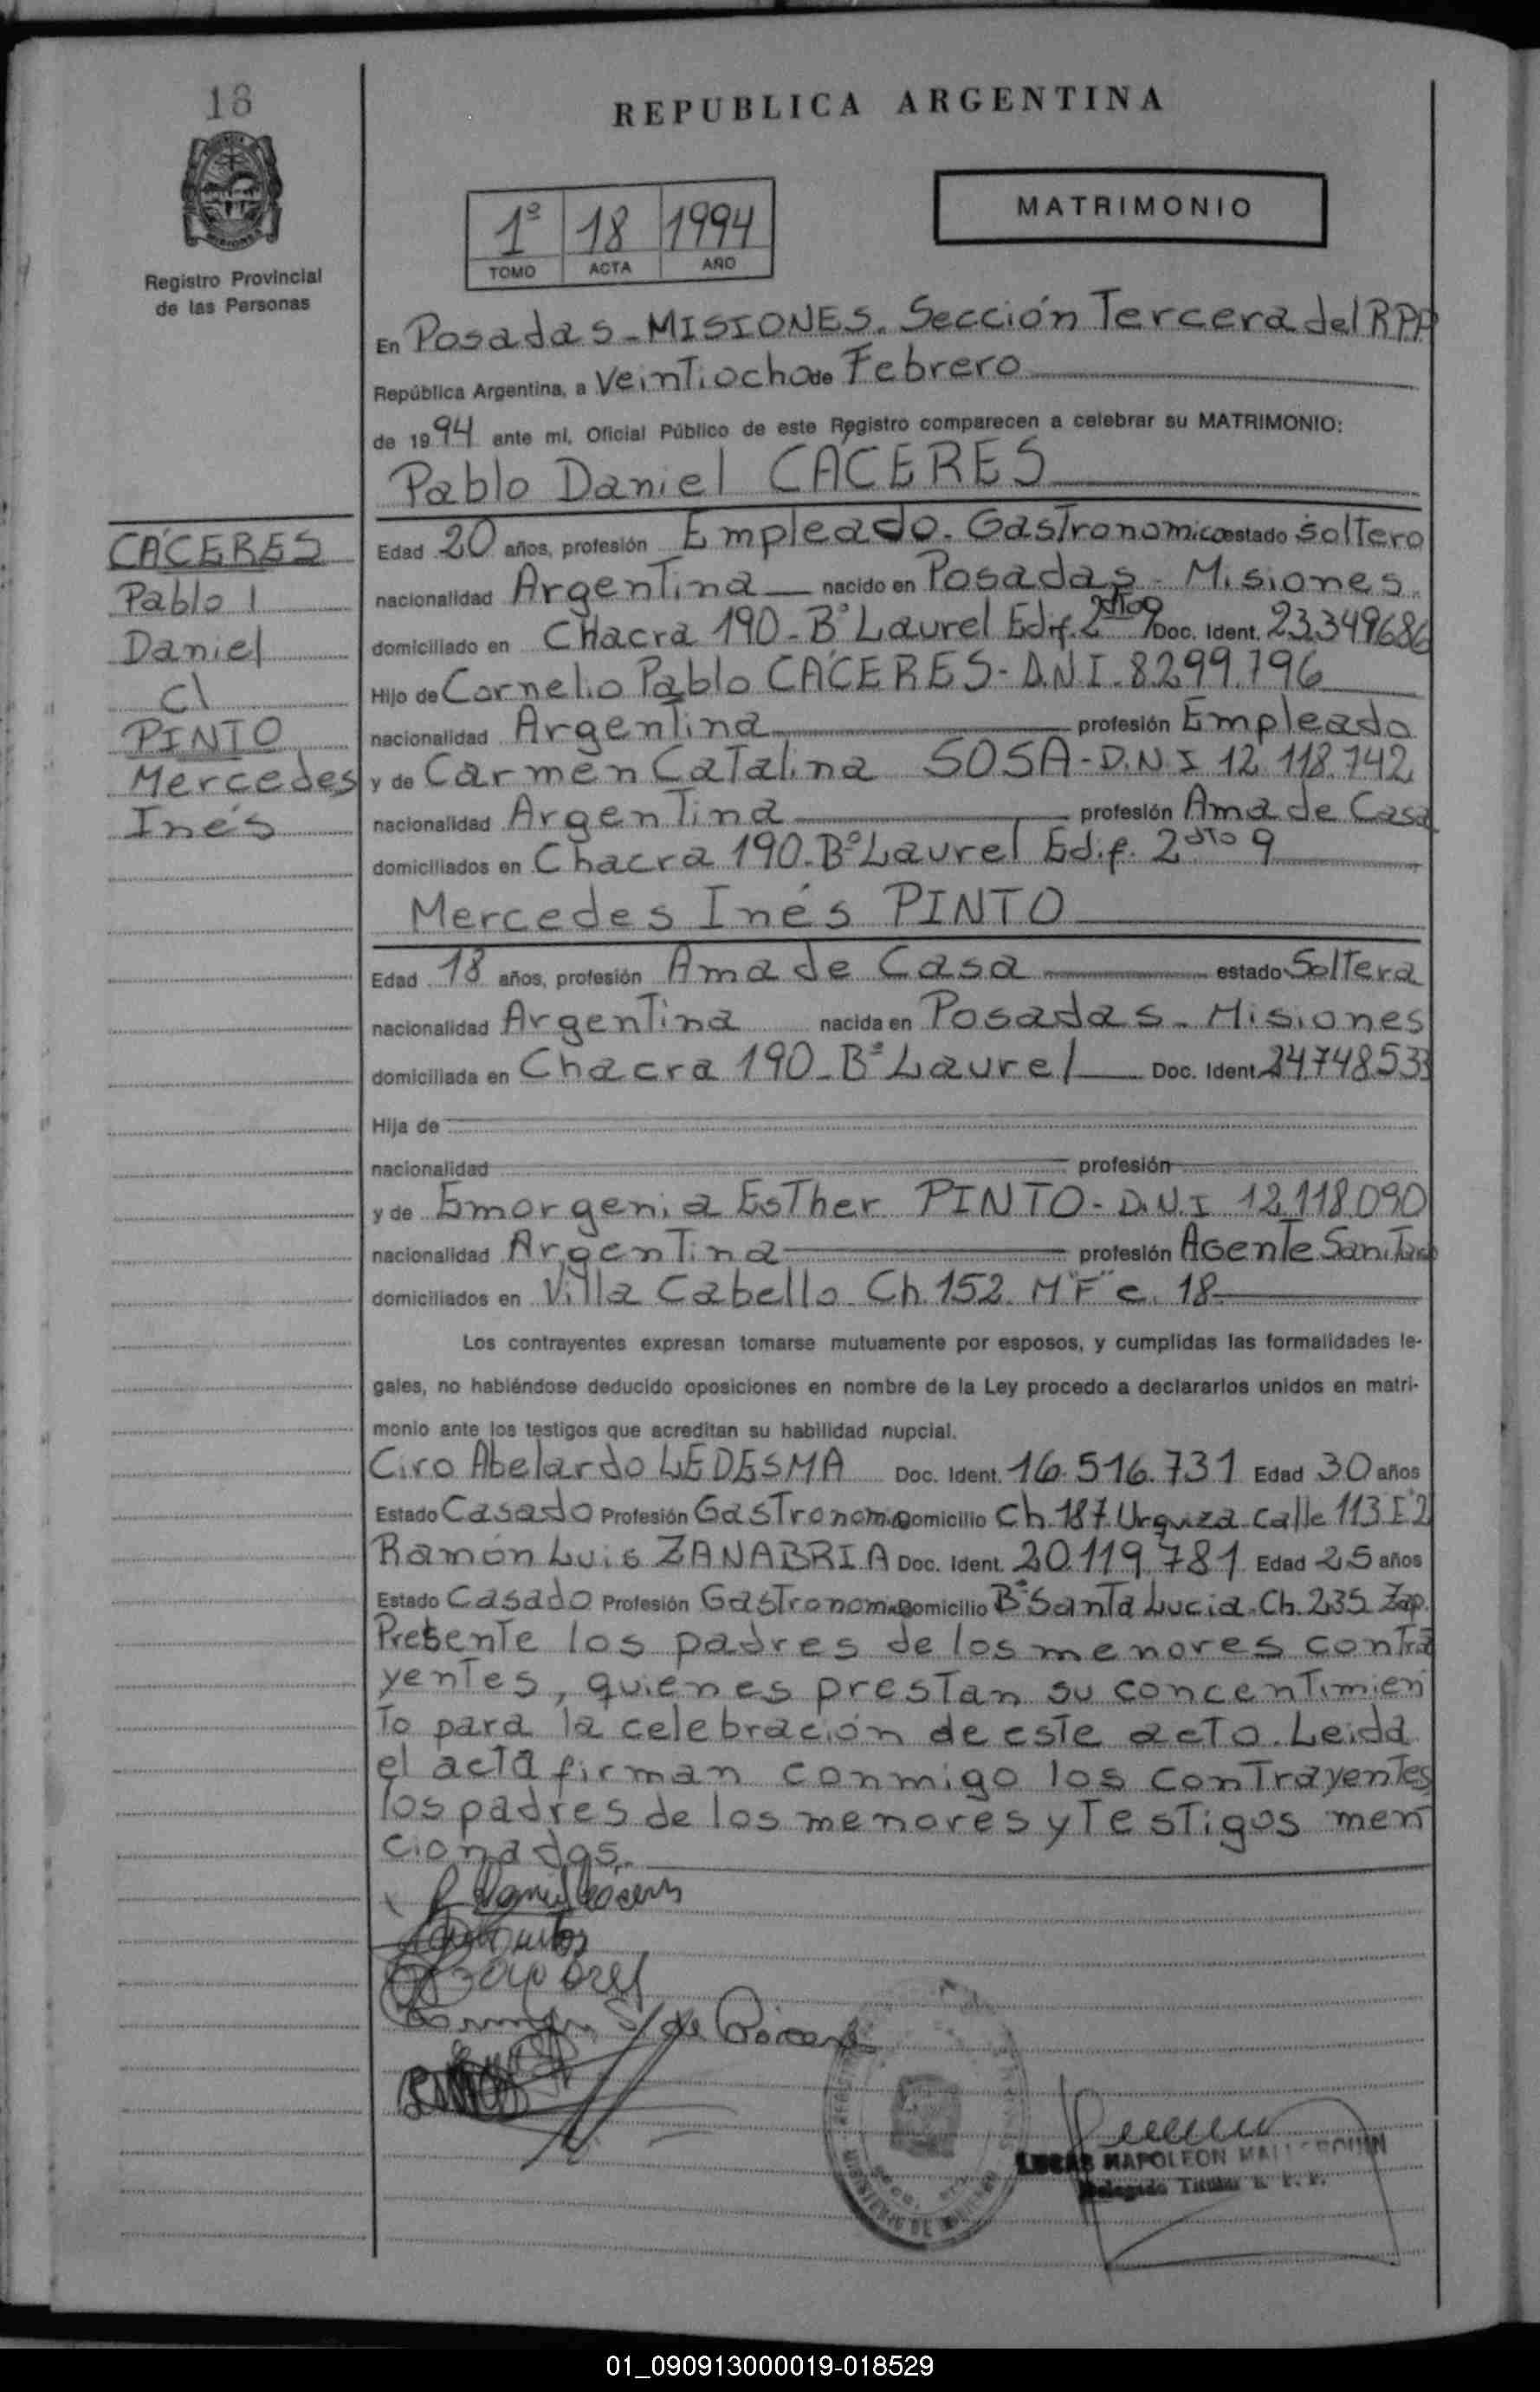 18
REPUBLICA ARGENTINA
1º 18 1994
TOMO ACTA AÑO
MATRIMONIO
Registro Provincial
de las Personas
En Posadas - MISIONES. Sección Tercera del RPP
República Argentina, a Veintiocho de Febrero
de 1994 ante mi, Oficial Público de este Registro comparecen a celebrar su MATRIMONIO:
Pablo Daniel CÁCERES
CÁCERES
Pablo
Daniel
c/
PINTO
Mercedes
Inés
Edad 20 años, profesión Empleado. Gastronomico estado soltero
nacionalidad Argentina nacido en Posadas - Misiones.
domiciliado en Chacra 190 - Bº Laurel Edif. 2 dto 9 Doc. Ident. 23.349.686
Hijo de Cornelio Pablo CÁCERES - D.N.I. 8.299.796
nacionalidad Argentina profesión Empleado
y de Carmen Catalina SOSA - D.N.I 12.118.742
nacionalidad Argentina profesión Ama de Casa
domiciliados en Chacra 190. Bº Laurel Edif. 2 dto 9
Mercedes Inés PINTO
Edad 18 años, profesión Ama de Casa estado Soltera
nacionalidad Argentina nacida en Posadas - Misiones
domiciliada en Chacra 190 - Bº Laurel Doc. Ident. 24.748.533
Hija de
nacionalidad profesión
y de Emorgenia Esther PINTO - D.N.I 12.118.090
nacionalidad Argentina profesión Agente Sanitario
domiciliados en Villa Cabello. Ch. 152. M"F" c. 18.
Los contrayentes expresan tomarse mutuamente por esposos, y cumplidas las formalidades le-
gales, no habiéndose deducido oposiciones en nombre de la Ley procedo a declararlos unidos en matri-
monio ante los testigos que acreditan su habilidad nupcial.
Ciro Abelardo LEDESMA Doc. Ident. 16.516.731 Edad 30 años
Estado Casado Profesión Gastronom. Domicilio Ch. 187. Urquiza Calle 113 I 2
Ramón Luis ZANABRIA Doc. Ident. 20.119.781 Edad 25 años
Estado Casado Profesión Gastronom. Domicilio Bº Santa Lucia. Ch. 235 Zap.
Presente los padres de los menores contra
yentes, quienes prestan su concentimien
to para la celebración de este acto. Leida
el acta firman conmigo los contrayentes
los padres de los menores y testigos men
cionados.
LUCAS NAPOLEON
Delegado Titular R. P. P.
01_090913000019-018529